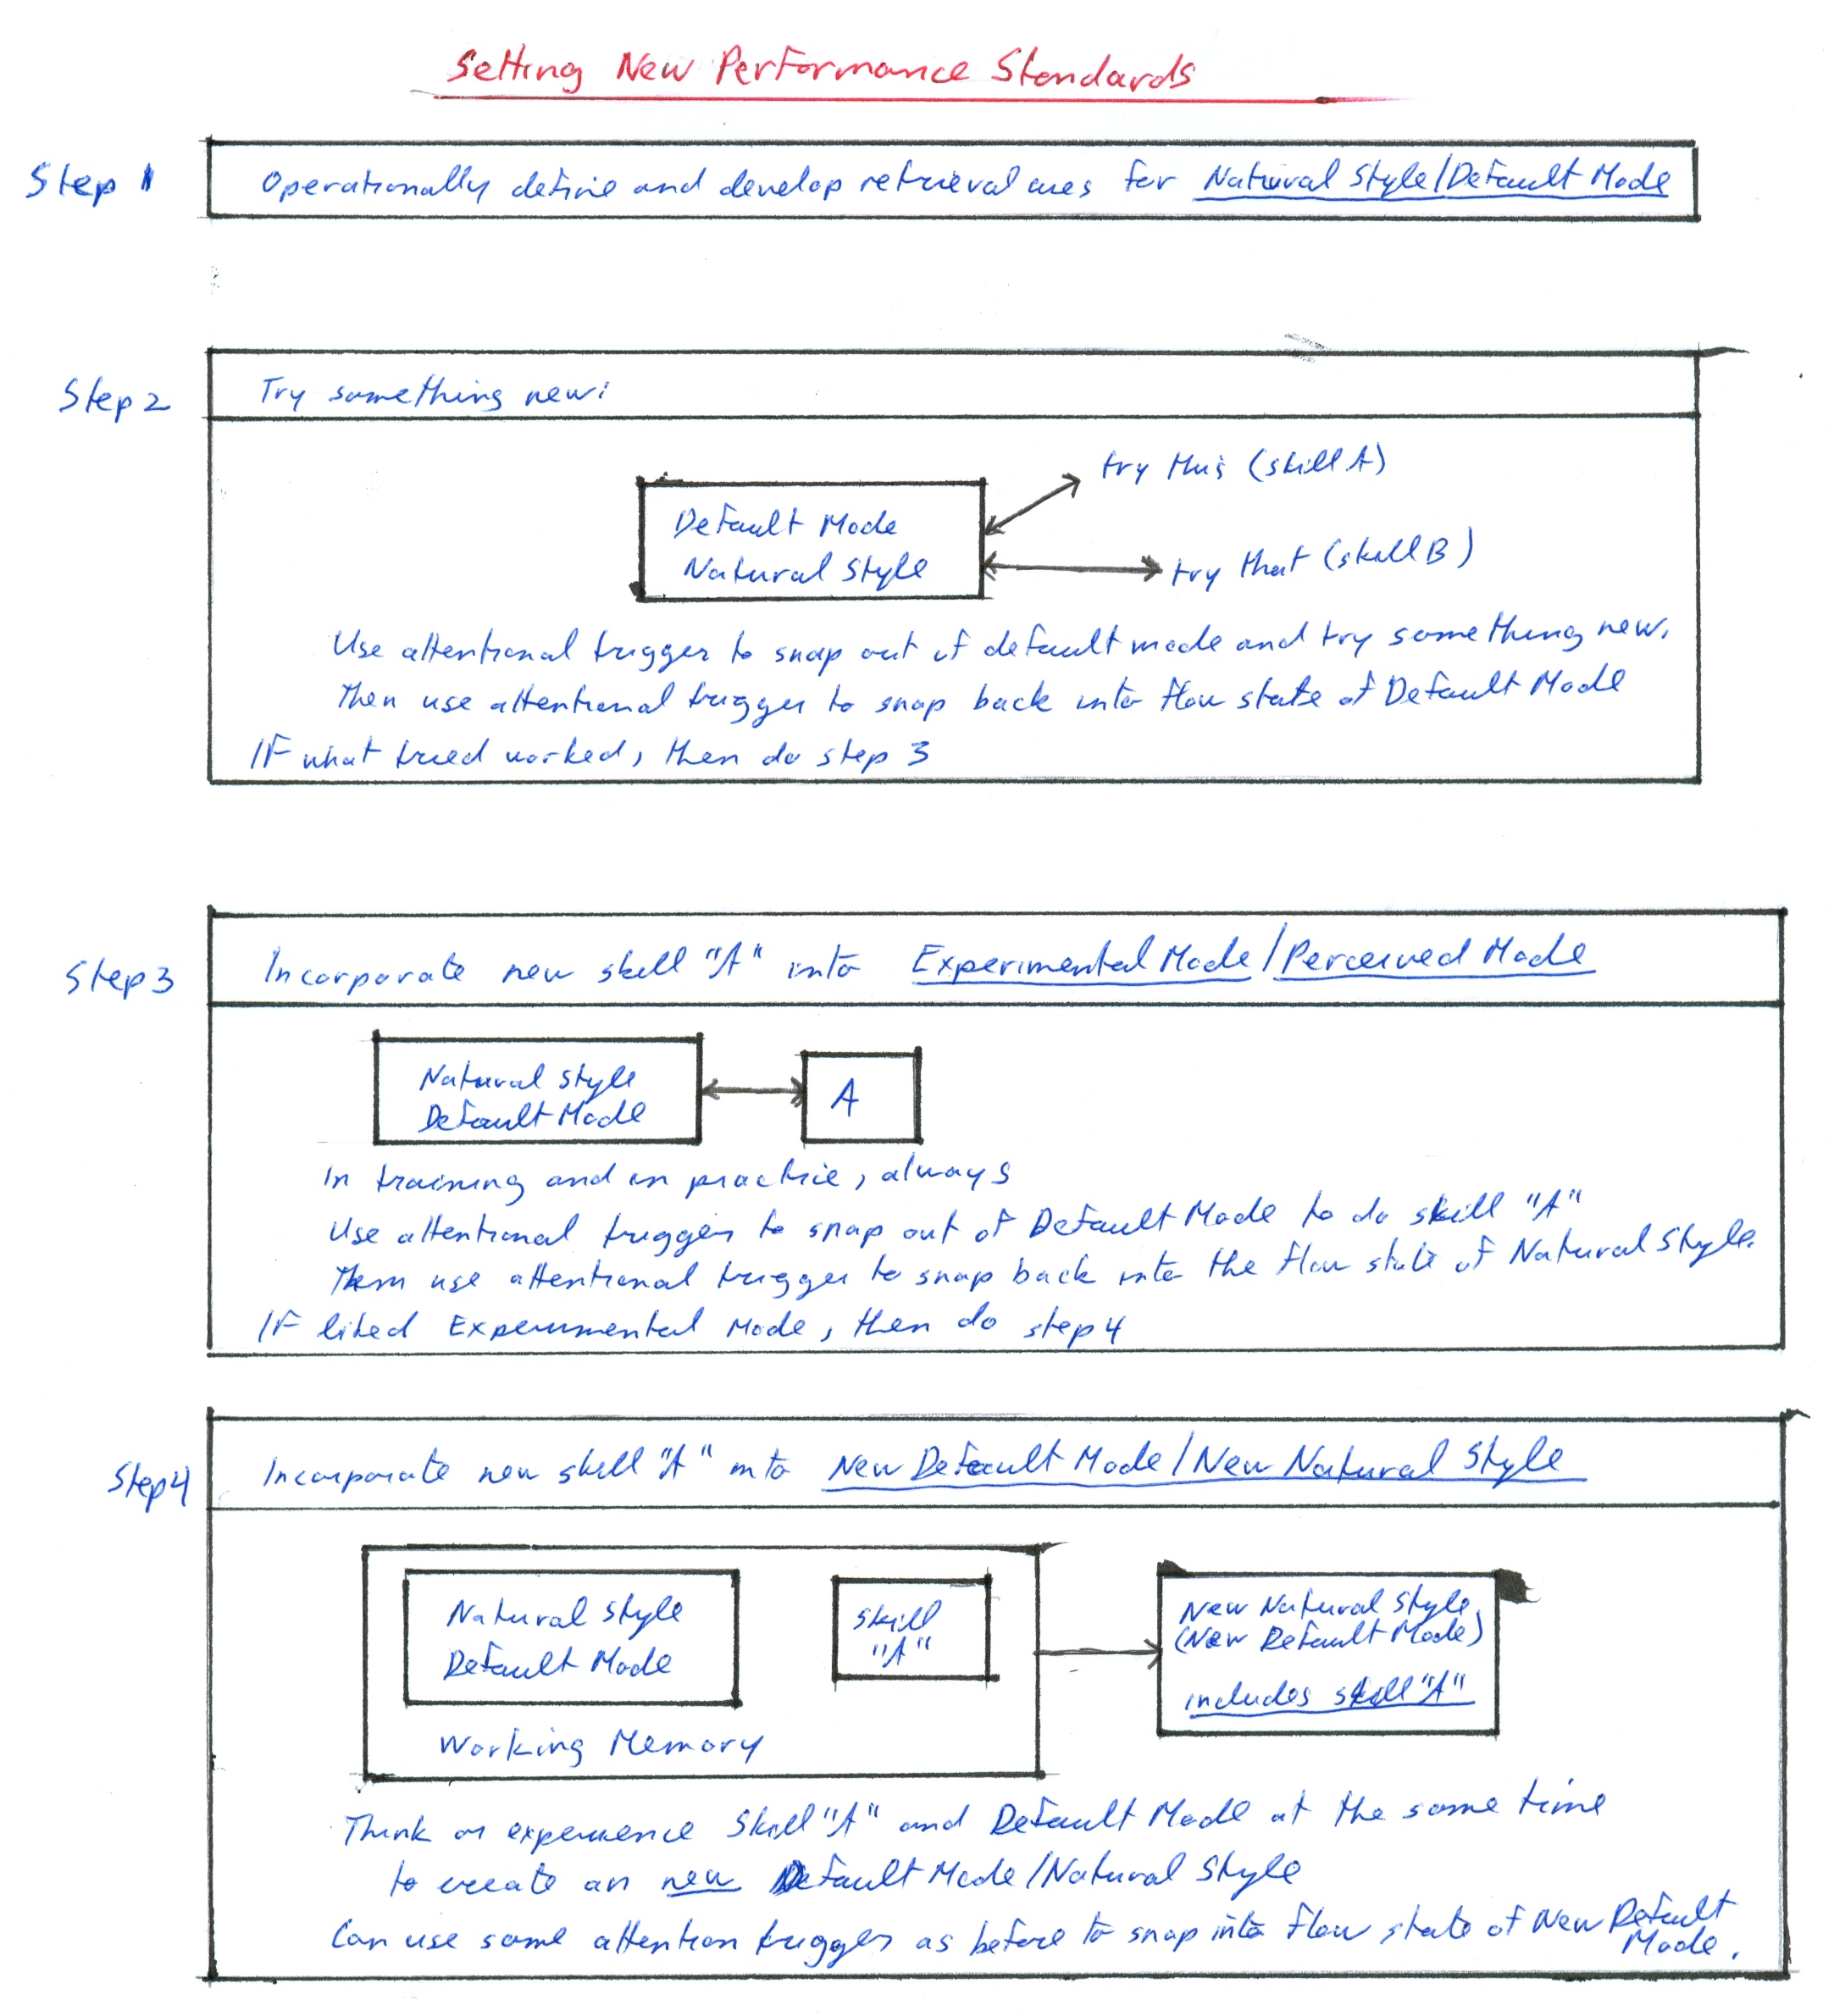 Setting New Performance Standards
Step 1
Operationally define and develop retrieval cues for Natural Style/Default Mode
Step 2
Try something new:
try this (skill A)
Default Mode
Natural Style
try that (skill B)
Use attentional trigger to snap out of default mode and try something new.
Then use attentional trigger to snap back into flow state of Default Mode
If what tried worked, then do step 3
Step 3
Incorporate new skill "A" into Experimental Mode/Perceived Mode
Natural Style
Default Mode
A
In training and in practice, always
Use attentional trigger to snap out of Default Mode to do skill "A"
Then use attentional trigger to snap back into the flow state of Natural Style.
If liked Experimental Mode, then do step 4
Step 4
Incorporate new skill "A" into New Default Mode/New Natural Style
Natural Style
Default Mode
Skill
"A"
Working Memory
New Natural Style
(New Default Mode)
includes skill "A"
Think or experience Skill "A" and Default Mode at the same time
to create an new Default Mode/Natural Style
Can use same attention trigger as before to snap into flow state of New Default
Mode.